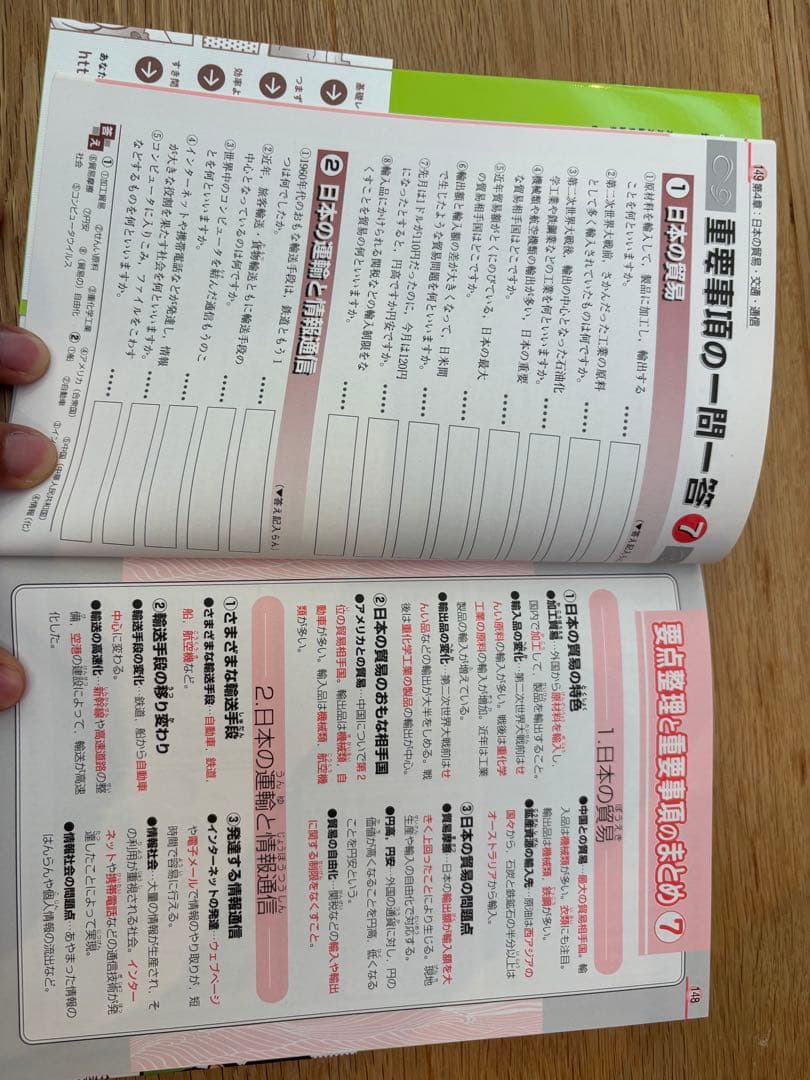 148
要点整理と重要事項のまとめ 7
1.日本の貿易
①日本の貿易の特色
●加工貿易…外国から原材料を輸入し、
国内で加工して、製品を輸出すること。
●輸入品の変化…第二次世界大戦前はせ
んい原料の輸入が多い。戦後は重化学
工業の原料の輸入が増加。近年は工業
製品の輸入が増えている。
●輸出品の変化…第二次世界大戦前はせ
んい品などの輸出が大半をしめる。戦
後は重化学工業の製品の輸出が中心。
②日本の貿易のおもな相手国
●アメリカとの貿易…中国について第2
位の貿易相手国。輸出品は機械類、自
動車が多い。輸入品は機械類、航空機
類が多い。
●中国との貿易…最大の貿易相手国。輸
入品は機械類が多い。衣類にも注目。
輸出品は機械類、鉄鋼が多い。
●鉱産資源の輸入先…原油は西アジアの
国々から、石炭と鉄鉱石の半分以上は
オーストラリアから輸入。
③日本の貿易の問題点
●貿易摩擦…日本の輸出額が輸入額を大
きく上回ったことにより生じる。現地
生産や輸入の自由化で対応する。
●円高、円安…外国の通貨に対し、円の
価値が高くなることを円高、低くなる
ことを円安という。
●貿易の自由化…関税などの輸入や輸出
に関する制限をなくすこと。
2.日本の運輸と情報通信
①さまざまな輸送手段
●さまざまな輸送手段…自動車、鉄道、
船、航空機など。
②輸送手段の移り変わり
●輸送手段の変化…鉄道、船から自動車
中心に変わる。
●輸送の高速化…新幹線や高速道路の整
備、空港の建設によって、輸送が高速
化した。
③発達する情報通信
●インターネットの発達…ウェブページ
や電子メールで情報のやり取りが、短
時間で容易に行える。
●情報社会…大量の情報が生産され、そ
の利用が重視される社会。インター
ネットや携帯電話などの通信技術が発
達したことによって実現。
●情報社会の問題点…あやまった情報の
はんらんや個人情報の流出など。
149 第4章：日本の貿易・交通・通信
重要事項の一問一答 7
1 日本の貿易
①原材料を輸入して、製品に加工し、輸出する
ことを何といいますか。
②第二次世界大戦前、さかんだった工業の原料
として多く輸入されていたものは何ですか。
③第二次世界大戦後、輸出の中心となった石油化
学工業や鉄鋼業などの工業を何といいますか。
④機械類や航空機類の輸出が多い、日本の重要
な貿易相手国はどこですか。
⑤近年貿易額がとくにのびている、日本の最大
の貿易相手国はどこですか。
⑥輸出額と輸入額の差が大きくなって、日米間
で生じたような貿易問題を何といいますか。
⑦先月は1ドルが110円だったのに、今月は120円
になったとすると、円高ですか円安ですか。
⑧輸入品にかけられる関税などの輸入制限をな
くすことを貿易の何といいますか。
2 日本の運輸と情報通信
(▼答え記入らん)
①1960年代のおもな輸送手段は、鉄道ともう1
つは何でしたか。
②近年、旅客輸送、貨物輸送ともに輸送手段の
中心となっているのは何ですか。
③世界中のコンピュータを結んだ通信もうのこ
とを何といいますか。
④インターネットや携帯電話などが発達し、情報
が大きな役割を果たす社会を何といいますか。
⑤コンピュータに入りこみ、ファイルをこわす
などするものを何といいますか。
答え
1 ①加工貿易 ②せんい原料 ③重化学工業 ④アメリカ(合衆国) ⑤中国(中華人民共和国)
⑥貿易摩擦 ⑦円安 ⑧(貿易の)自由化 2 ①船 ②自動車 ③イン ④情報(化)
社会 ⑤コンピュータウイルス
基礎し
つまず
効率よ
すき間
あなた
htt